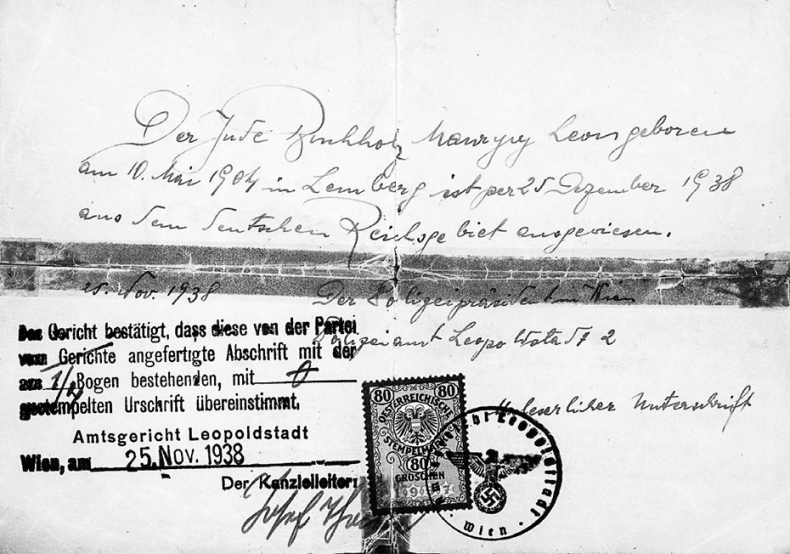 Der Jude Buchholz Maurycy Leon geboren
am 10. Mai 1904 in Lemberg ist per 25 Dezember 1938
aus dem deutschen Reichsgebiet ausgewiesen.
25. Nov. 1938
Der Polizeipräsident in Wien
Polizeiamt Leopoldstadt 2
Unleserlicher Unterschrift
Das Gericht bestätigt, dass diese von der Partei
vom Gerichte angefertigte Abschrift mit der
aus 1/2 Bogen bestehenden, mit 0
gestempelten Urschrift übereinstimmt.
Amtsgericht Leopoldstadt
Wien, am 25. Nov. 1938
Der Kanzleileiter:
Josef
80 80
ÖSTERREICHISCHE
STEMPELMARKE
80
GROSCHEN
Leopoldstadt
Wien